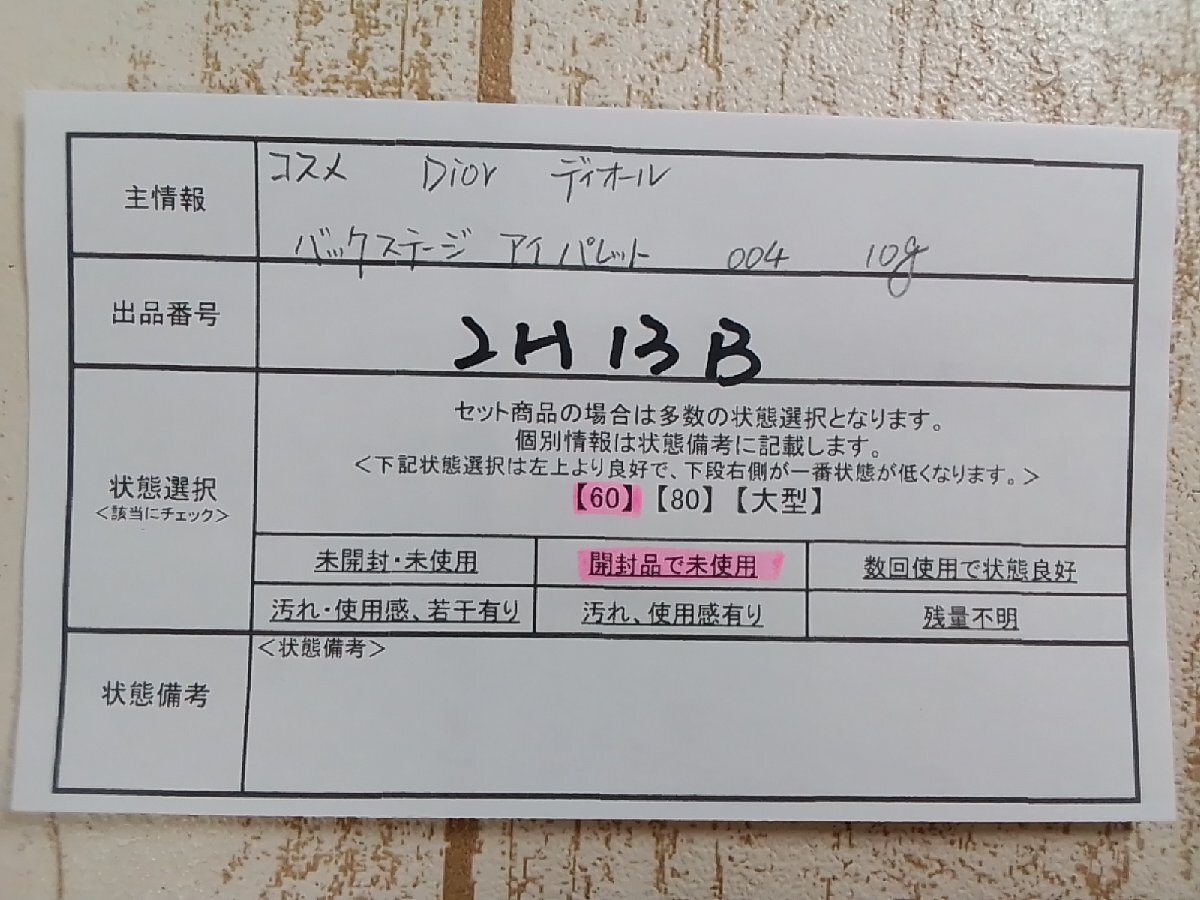 主情報
コスメ Dior ディオール
バックステージ アイパレット 004 10g
出品番号
2H13B
状態選択
＜該当にチェック＞
セット商品の場合は多数の状態選択となります。
個別情報は状態備考に記載します。
＜下記状態選択は左上より良好で、下段右側が一番状態が低くなります。＞
【60】【80】【大型】
未開封・未使用 開封品で未使用 数回使用で状態良好
汚れ・使用感、若干有り 汚れ、使用感有り 残量不明
状態備考
＜状態備考＞